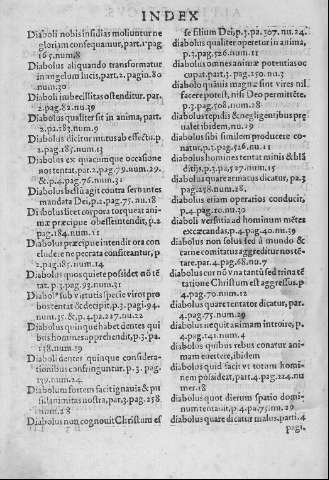 INDEX
Diaboli nobis insidias moliuntur ne
gloriam consequamur, part. 1 pag
165. num. 8
Diabolus aliquando transformatur
in angelum lucis, part. 2. pagin. 80
num. 30
Diaboli imbecillitas ostenditur. par.
2. pag. 82. nu. 39
Diabolus qualiter sit in anima, part.
2. pa. 183. num. 9
Diabolus dicitur mutus ab effectu. p.
2. pag. 185. num. 13
Diabolus ex quacumque occasione
nos tentat. par. 2. pag. 79. num. 29.
& p. 4. pag. 76. num. 31
Diabolus bella agit contra seruantes
mandata Dei, p. 2. pag. 75. nu. 18
Diabolus licet corpora torqueat animæ
præcipue obesse intendit, p. 2
pag. 184. num. 11
Diabolus præcipue intendit ora con
cludere ne peccata confiteantur, p
2. pag. 185. num. 14
Diabolus quos quiete possidet nõ tẽ
tat. p. 3. pag. 93. num. 31
Diabolus sub virtutis specie viros pro
bos tentat & decipit, p. 3. pagi. 94.
num. 35. & p. 4. pa. 217. nu. 22
Diabolus quinque habet dentes qui
bus homines apprehendit, p. 3. pa.
138. num. 19
Diaboli dentes quinque considerationibus
confringuntur. p. 3. pag.
139. num. 24.
Diabolum fortem facit ignauia & pu
sillanimitas nostra, par. 3. pag. 258.
num. 28
Diabolus non cognouit Christum es
se filium Dei, p. 3. pa. 307. nu. 24.
diabolus qualiter operetur in anima,
p. 3. pag. 526. num. 11
diabolus omnes animæ potentias oc
cupat. part. 3. pag. 250. nu. 3
diabolo quanis magna sint vires nil
facere potest, nisi Deo permittẽte.
p. 3. pag. 508. num. 28
diabolus tepidis & negligentibus præ
ualet ibidem, nu. 29
diabolus sibi similem producere conatur,
p. 3. pag. 526. num. 11
diabolus homines tentat minis & blã
ditijs. p. 3. pa. 527. num. 15
diabolus quare armatus dicatur, pa. 3
pag. 258. num. 28.
diabolus etiam operarios conducit,
p. 4. pag. 10. nu. 30
diaboli versutia ad hominum mẽtes
excæcandas. p. 4. pag. 40. nu. 39
diabolus non solus sed û mundo &
carne comitatus aggreditur nos tẽtare.
par. 4. pag. 68. nu. 7
diabolus cur nõ vna tantũ sed trina tẽ
tatione Christum est aggressus. p.
4. pag. 70. num. 12
diabolus quare tentator dicatur, par.
4. pag. 75. num. 29
diabolus nequit animam introire, p.
4. pag. 141. num. 4
diabolus quibus rebus conatur animam
euertere, ibidem
diabolus quid facit vt totam hominem
possideat, part. 4. pag. 224. numer.
18
diabolus quot dierum spatio dominum
tentauit, p. 4. pa. 75. nu. 29
diabolus quare dicatur malus. parti. 4
pagi.